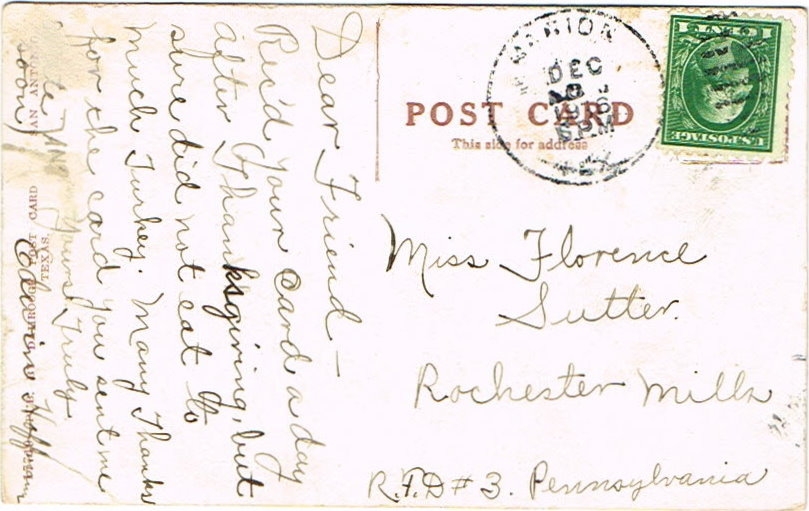 Dear Friend —
Rec'd your card a day
after Thanksgiving, but
sure did not eat to
much Turkey. Many Thanks
for the card you sent me
Yours Truly
Edwin
soon)
POST CARD
This side for address
MARION
DEC
6 PM
TEX
1 CENT 1
U.S. POSTAGE
Miss Florence
Sutter.
Rochester Mills
R.F.D # 3. Pennsylvania
POST CARD
SAN ANTONIO
TEXAS.